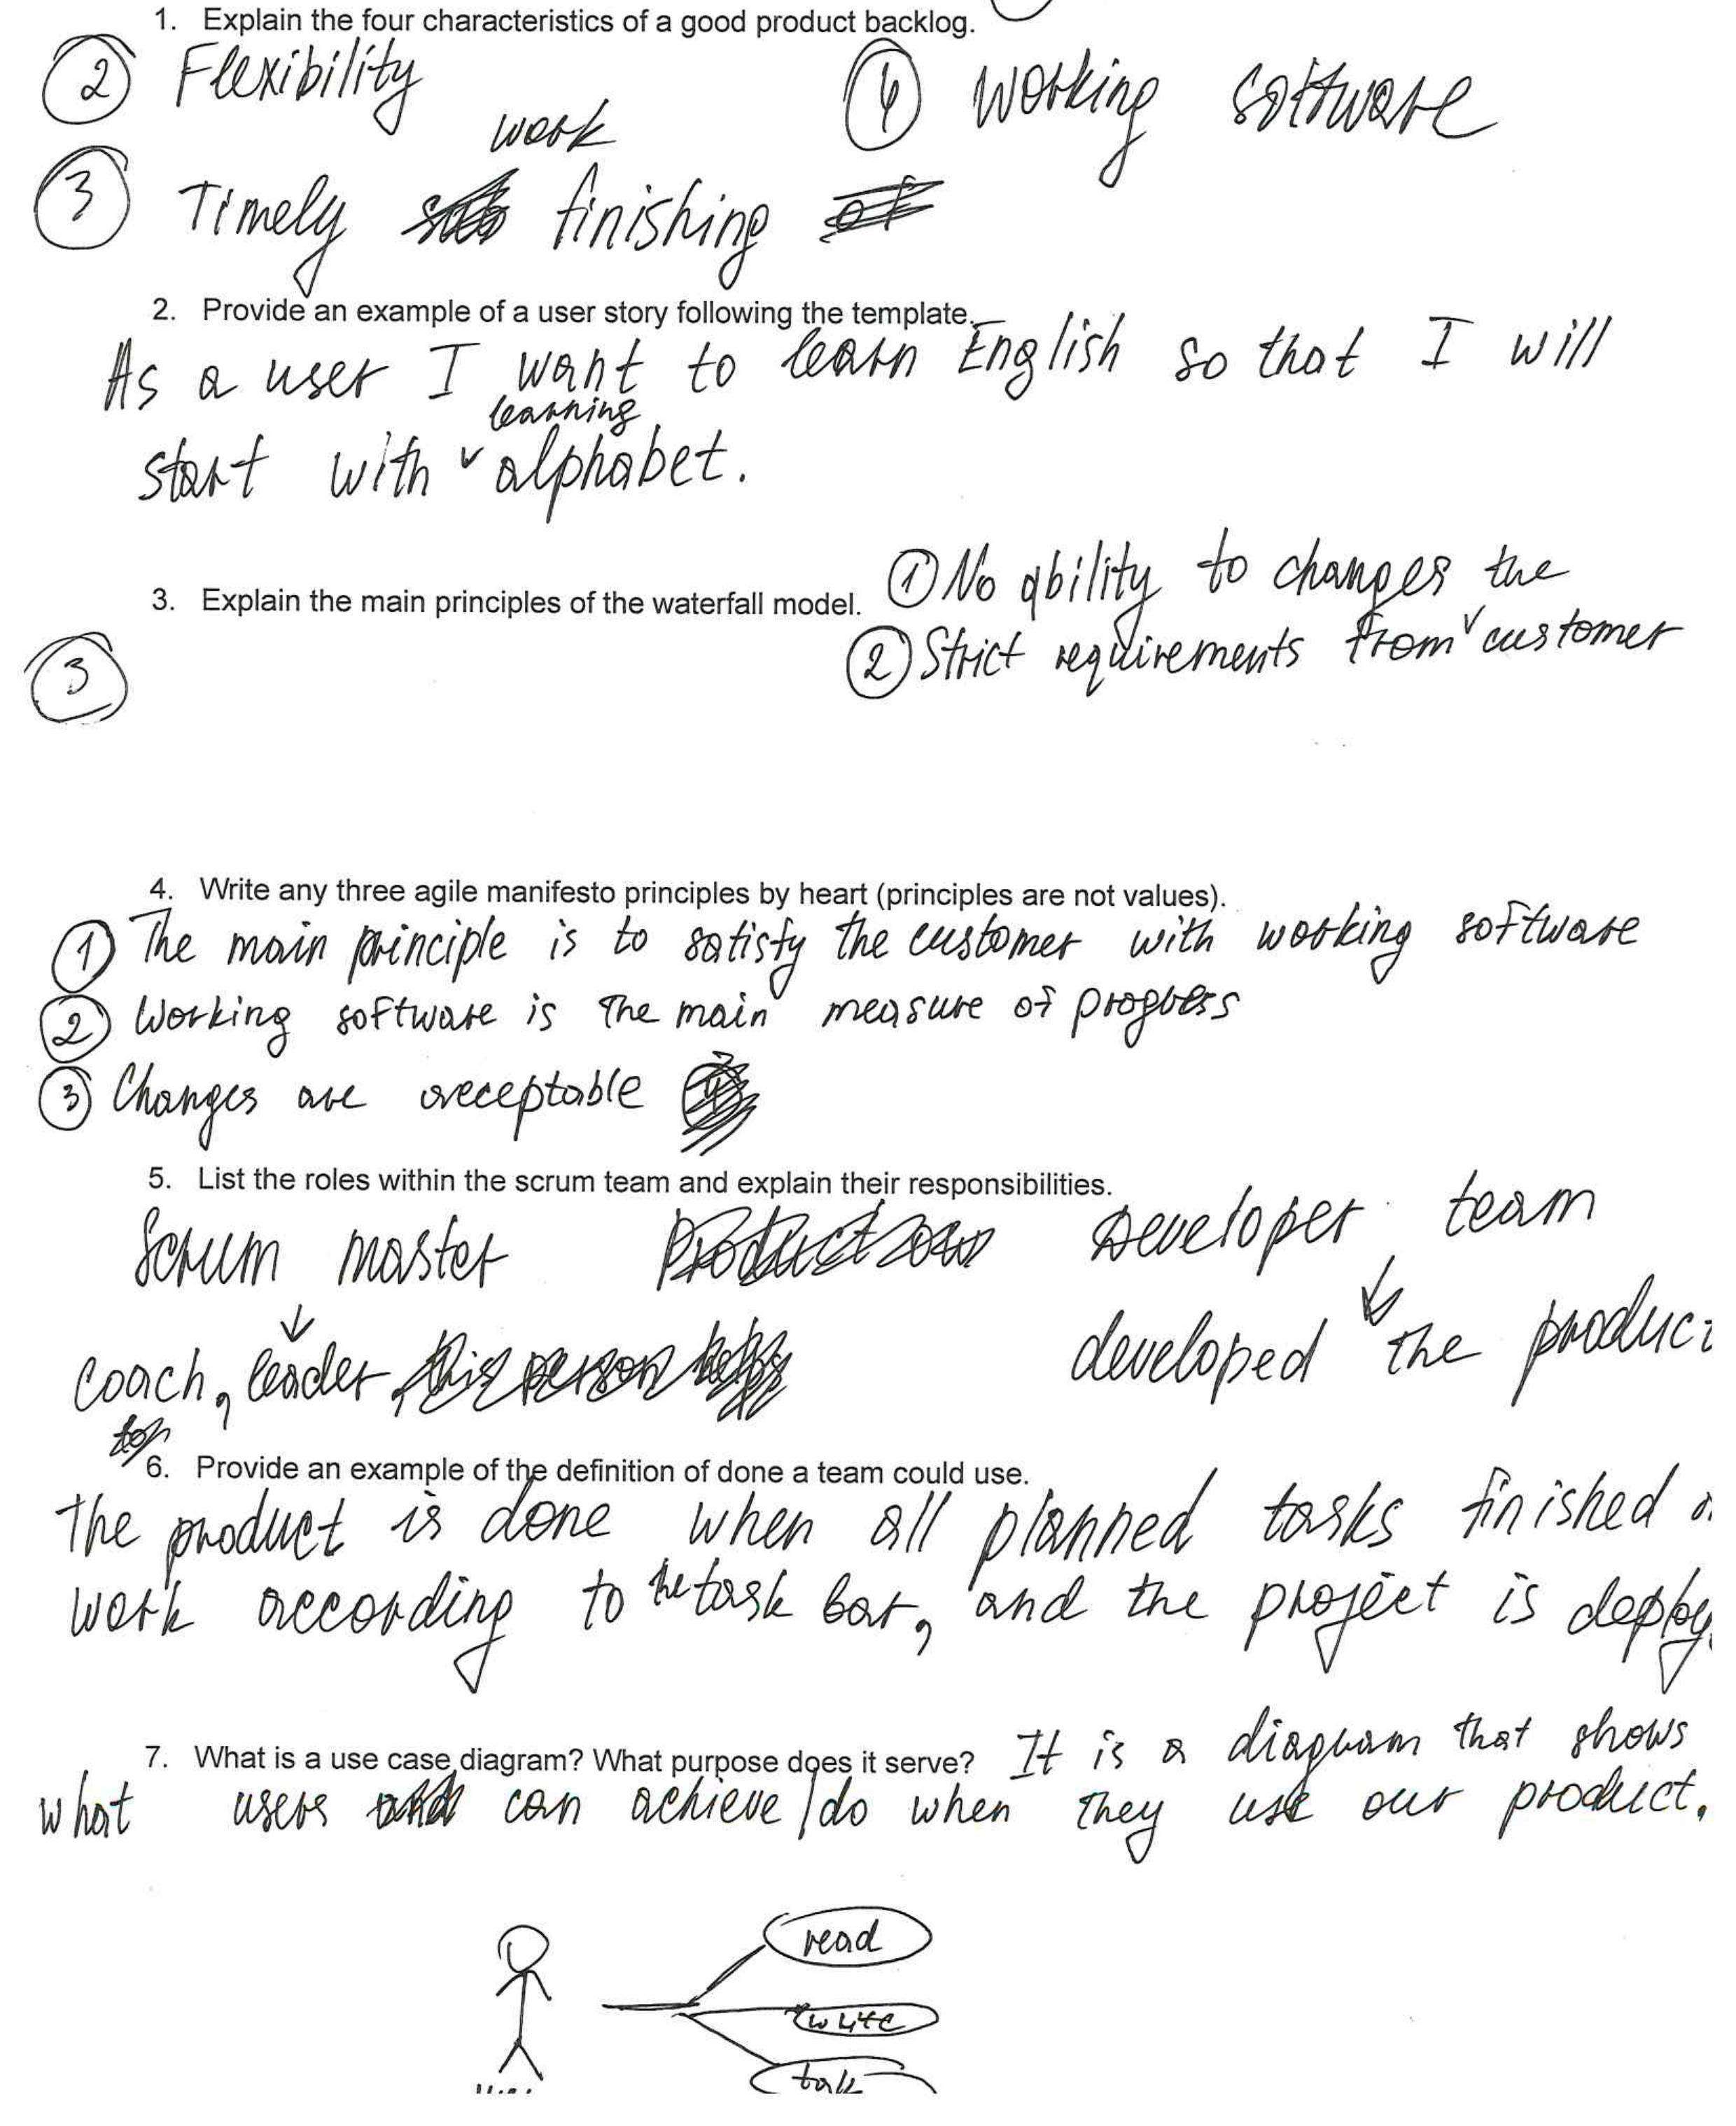 1. Explain the four characteristics of a good product backlog.
② Flexibility ④ Working software
work
③ Timely finishing
2. Provide an example of a user story following the template.
As a user I want to learn English so that I will
learning
start with alphabet.
① No ability to changes the
3. Explain the main principles of the waterfall model.
② Strict requirements from customer
③
4. Write any three agile manifesto principles by heart (principles are not values).
① The main principle is to satisfy the customer with working software
② Working software is the main measure of progress
③ Changes are acceptable
5. List the roles within the scrum team and explain their responsibilities.
Scrum master Developer team
coach, leader developed the product
6. Provide an example of the definition of done a team could use.
The product is done when all planned tasks finished
work according to the task bar, and the project is
7. What is a use case diagram? What purpose does it serve? It is a diagram that shows
what users can achieve/do when they use our product.
read
write
talk